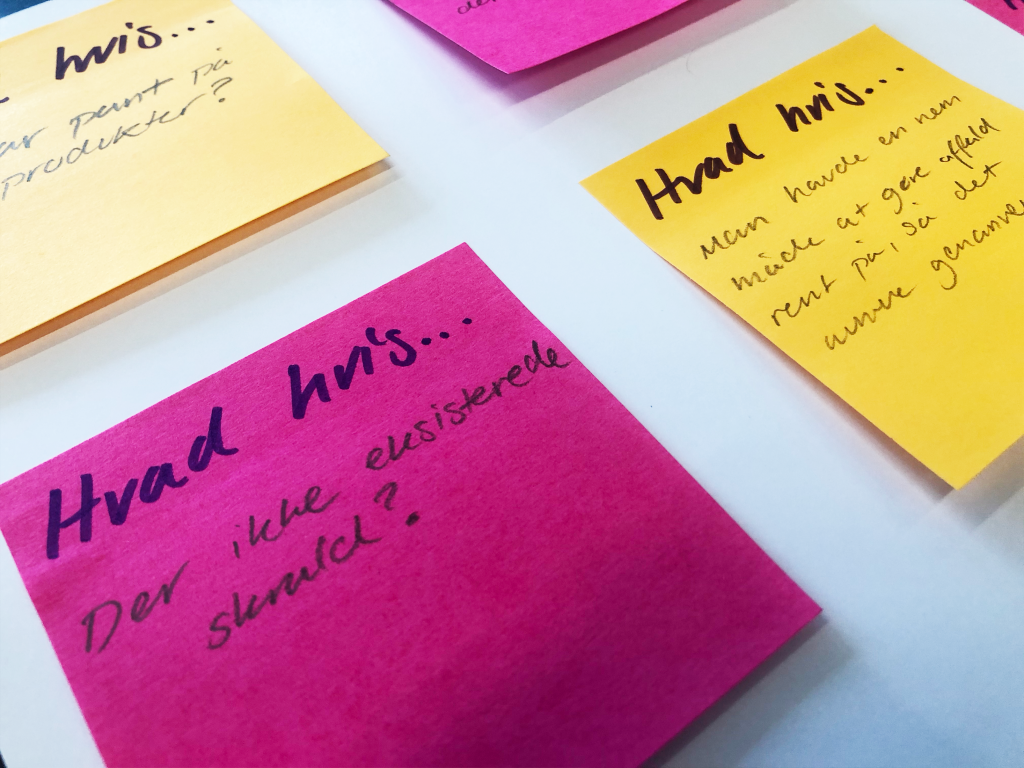 hvis...
pant på
produkter?
Hvad hvis...
Der ikke eksisterede
skrald?
Hvad hvis...
Man havde en nem
måde at gøre affald
rent på, så det
kunne